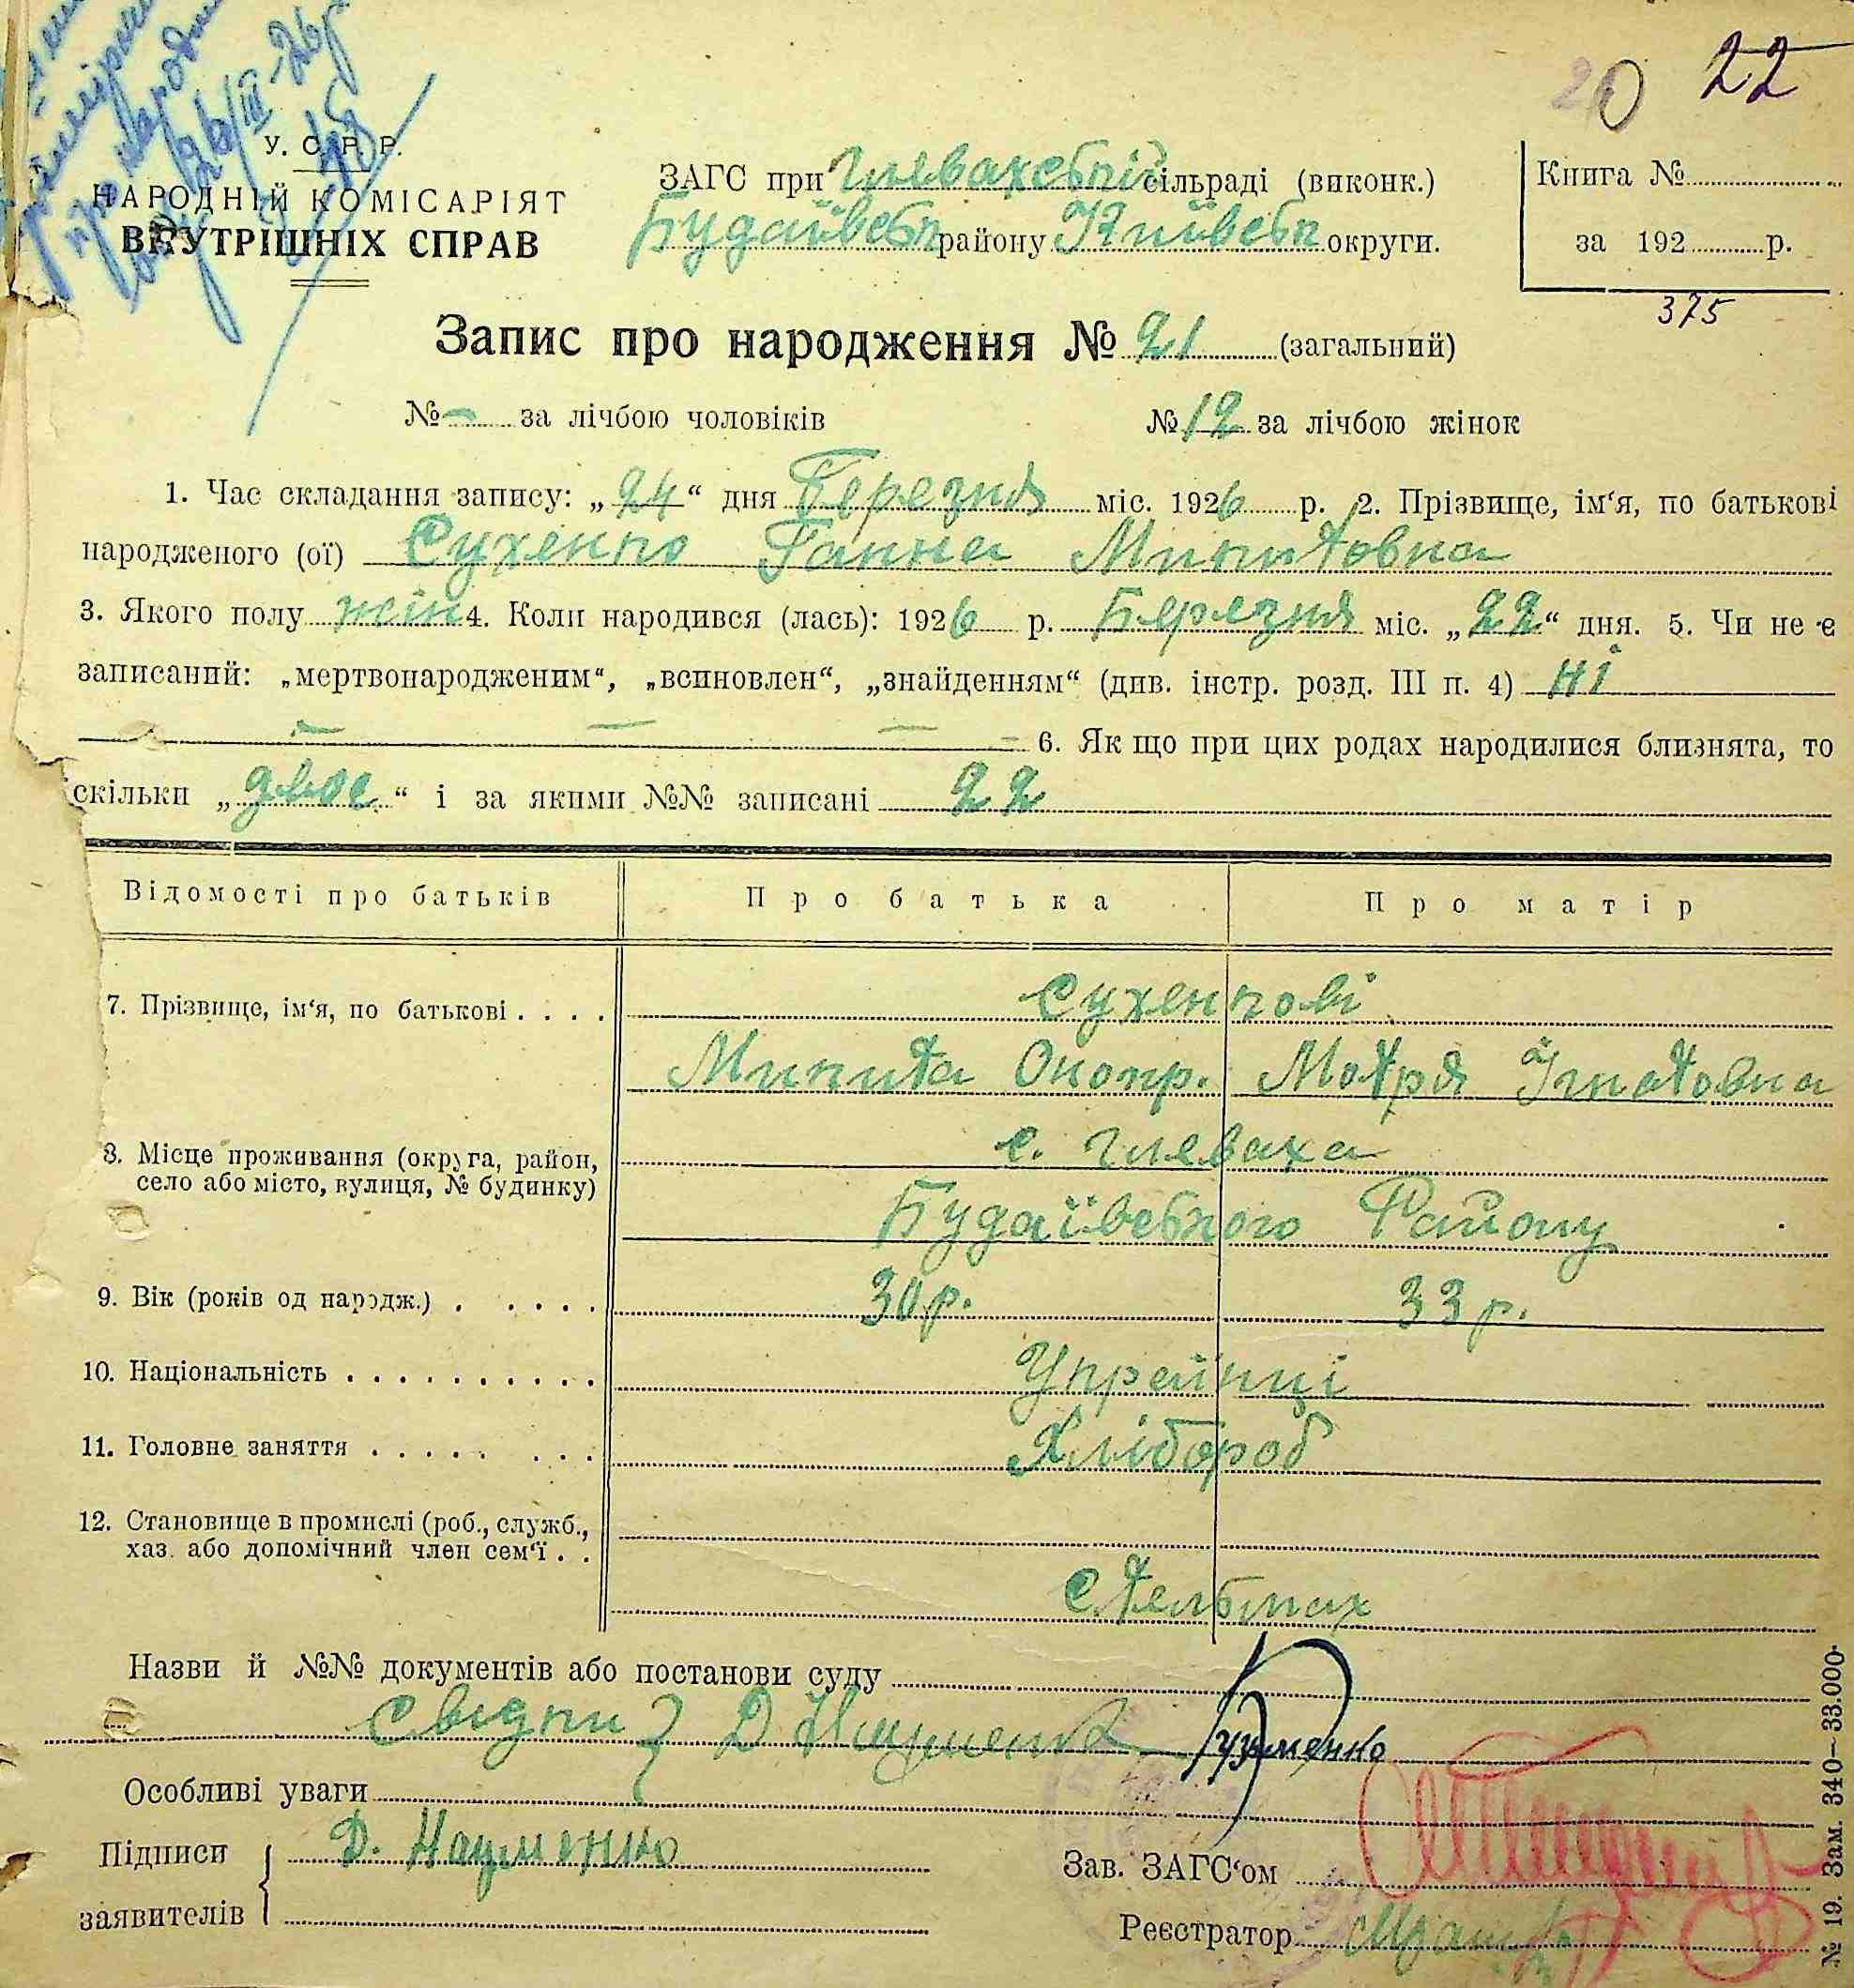 20 22
У. С. Р. Р.
НАРОДНІЙ КОМІСАРІЯТ
ВНУТРІШНІХ СПРАВ
26/III-26р
ЗАГС при Глевахській сільраді (виконк.)
Будаївськ району Київськ округи.
Книга №
за 192 р.
375
Запис про народження № 21 (загальний)
№ — за лічбою чоловіків № 12 за лічбою жінок
1. Час складання запису: „24“ дня Березня міс. 1926 р. 2. Прізвище, ім‘я, по батькові
народженого (ої) Сухенко Ганна Микитовна
3. Якого полу жін 4. Коли народився (лась): 1926 р. Березня міс. „22“ дня. 5. Чи не є
записаний: „мертвонародженим“, „всиновлен“, „знайденням“ (див. інстр. розд. III п. 4) ні
— — — — 6. Як що при цих родах народилися близнята, то
скільки „двое“ і за якими №№ записані 22
Відомості про батьків Про батька Про матір
7. Прізвище, ім‘я, по батькові . . . . Сухенкові
Микита Онопр. Мотря Ігнатовна
8. Місце проживання (округа, район, с. Глеваха
село або місто, вулиця, № будинку)
Будаївського Району
9. Вік (років од народж.) . . . . . 30 р. 33 р.
10. Національність . . . . . . . . . . Украінці
11. Головне заняття . . . . . . . . Хлібороб
12. Становище в промислі (роб., служб.,
хаз. або допомічний член сем‘ї . .
Стельмах
Назви й №№ документів або постанови суду
Свідки Д Науменко Кузменко
Особливі уваги
Підписи Д. Науменко
заявителів
Зав. ЗАГС‘ом
Реєстратор
№ 19. Зам. 340—33.000.